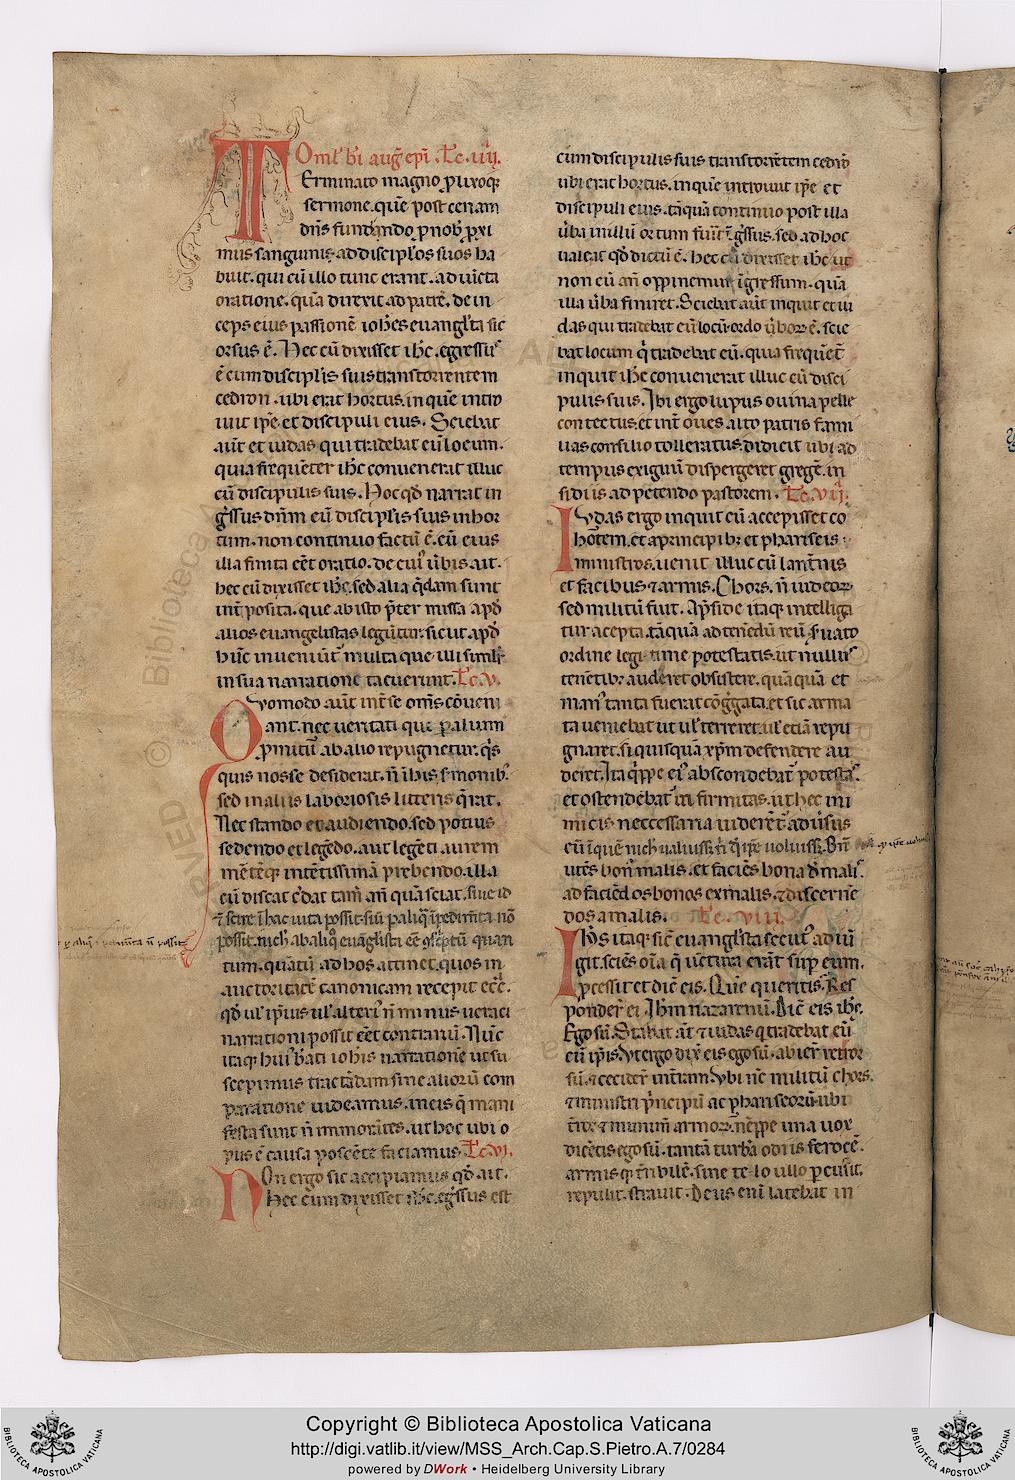 Oml' b̄i aug̃ ep̄i .Łc. iiij.
TErminato magno ꝓlixoq̃
sermone. quē post cenam
dñs fundendo ꝓ nob̃ ꝓxi
mus sanguinis. ad discip̃los suos ha
buit. qui cū illo tunc erant. adiūcta
oratione. quā direxit ad patrē. dein
ceps eius passionē ioh̃es euang̃lista sic
orsus ē. Hec cū dixisset ih̃c. egressus
ē cum discip̃lis suis trans torrentem
cedron. ubi erat hortus. in quē intro
iuit ip̃e. et discipuli eius. Sciebat
aūt et iudas qui tradebat eū locum.
quia frequēter ih̃c convenerat illuc
cū discipulis suis. Hoc qd̃ narrat in
g̃ssus dñm cū discip̃lis suis in hor
tum. non continuo factū ē. cū eius
illa finita eēt oratio. de cuiꝰ ũbis ait.
hec cū dixisset ih̃c. sed alia q̃dam sunt
int̃posita. que ab isto p̃ter missa apd̃
alios evangelistas legūtur. sicut apd̃
hūc inveniūt̃ multa que illi simili
in sua narratione tacuerunt. Łc. v.
Quomodo aūt int̃ se om̃s cōueni
ant. nec veritati que ꝑ alium
ꝓmitt̃ ab alio repugnetur. q̃s
quis nosse desiderat. ñ ī his s̃monib;
sed in aliis laboriosis litteris q̃rat.
Nec stando et audiendo. sed potius
sedendo et legēdo. aut legēti aurem
mētēq; intētissimā prebendo. illa
cū discat c̃dat tam̃ anq̃uā sciat. siue id
possit. nich̃ ab aliq̃ euāg̃lista eē
tum. quātū ad hos attinet. quos in
auctoritatē canonicam recepit ecc̃.
qd̃ ul' ip̃ius ul' alteriꝰ ñ minus ueraci
narrationi possit eēt contrariū. Nūc
itaq; huiꝰ b̃ati ioh̃is narrationē ut su
scepimus tractādam sine aliorū com
paratione uideamus. in eis q̃ mani
festa sunt ñ immorātes. ut hoc ubi o
pus ē causa poscēte faciamus. Łc. vi.
NOn ergo sic accipiamus qd̃ ait.
Hec cum dixisset ih̃c. eg̃ssus est
cum discipulis suis trans torrētem cedrō
ubi erat hortus. in quē introiuit ip̃e et
discipuli eius. tāquā continuo post illa
ũba in illū ortum fuīt īg̃ssus. sed ad hoc
ualeat qd̃ dictū ē. hec cū dixisset ih̃c ut
non eū añ oppinemur īgressum. quā
illa ũba finiret. Sciebat aūt inquit et iu
das qui tradebat eū locū. ordo ũborꝝ ē. scie
bat locum q̃ tradebat eū. quia frequēt̃
inquit ih̃c convenerat illuc cū disci
pulis suis. Ibi ergo lupus ovina pelle
contectus. et int̃ oues alto patris fami
lias consilio tolleratus. didicit ubi ad
tempus exiguū dispergeret gregē. in
sidiis ad petendo pastorem. Łc. vij.
IVdas ergo inquit cū accepisset co
hortem. et a principib; et phariseis
ministros. uenit illuc cū lant̃nis
et facibus ⁊ armis. Chors. ñ iudeorꝝ
sed militū fuit. Ap̃side itaq; intelliga
tur accepta. tāquā ad tenēdū reū. s̃uato
ordine legitime potestatis. ut nullus
tenētib; auderet obsistere. quāquā et
manꝰ tanta fuerat cōg̃gata. et sic arma
ta ueniebat ut ul' terreret. ul' etiā repu
gnaret. si quisquā xp̃m defendere au
deret. Ita q̃ppe eiꝰ abscondebat̃ potestas.
et ostendebat̃ infirmitas. ut hec ini
micis neccessaria uiderēt̃ adũsus
eū ī quē nich̃ ualuiss̃t ñ q̃ ip̃e uoluiss̃. Bñ
utēs bonꝰ malis. et faciēs bona d̃ malis.
ad faciēdos bonos ex malis. ⁊ discernē
dos a malis. Łc. viii.
Ih̃s itaq; sic̃ euang̃lista secutꝰ adiū
git. sciēs oīa q̃ uētura erāt sup̃ eum.
p̃cessit et dic̃ eis. Quē queritis. Res
ponder̃ ei. Ih̃m nazarenū. Dic̃ eis ih̃c.
Ego sū. Stabat aūt ⁊ iudas q̃ tradebat eū
cū ip̃is. Ut ergo dix̃ eis ego sū. abier̃ retror
sū. ⁊ cecider̃ in t̃ram. Ubi nc̃ militū chors.
⁊ ministri p̃ncipū ac phariseorū. ubi
t̃ror. ⁊ munim̃ armorꝝ. nēppe una uox
dicētis ego sū. tantā turbā odiis ferocē.
armisq; t̃ribilē. sine telo ullo ꝑcussit.
repulit. stravit. Deus enī latebat in
Copyright © Biblioteca Apostolica Vaticana
http://digi.vatlib.it/view/MSS_Arch.Cap.S.Pietro.A.7/0284
powered by DWork • Heidelberg University Library
BIBLIOTECA APOSTOLICA VATICANA
BIBLIOTECA APOSTOLICA VATICANA